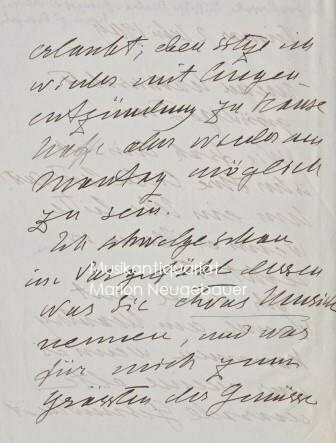 erlaubt; eben sitze ich
wieder mit Augen-
entzündung zu Hause
hoffe aber wieder am
Montag möglich
zu sein.
Ich schwelge schon
im Vorgefühl dessen
Musikantiquariat
Marion Neugebauer
was Sie etwas Musik
nennen, und was
für mich zum
Grössten der Genüsse